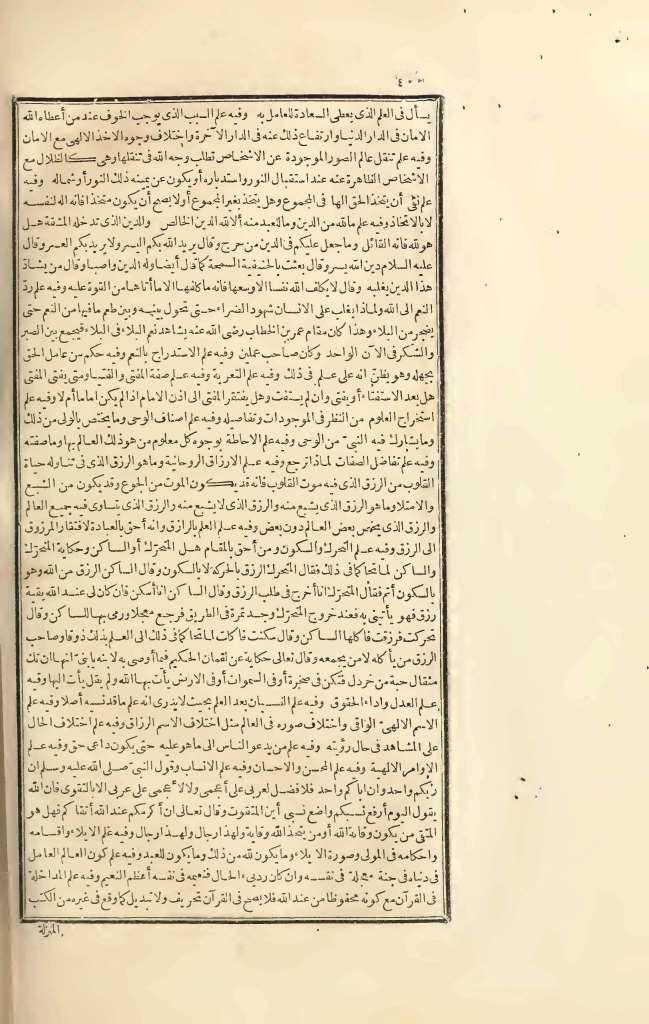 يسأل فى العلم الذى يعطى السعادة للعامل به وفيه علم السبب الذى يوجب الخوف عند من أعطاه الله
الامان فى الدار الدنيا وارتفاع ذلك عنه فى الدار الآخرة واختلاف وجوه الاخذ الالهى مع الامان
وفيه علم تنقل عالم الصور الموجودة عن الاشخاص تطلب وجه الله فى تنقلها وهى كالظلال مع
الاشخاص الظاهرة عنه عند استقبال النور واستدباره أو يكون عن يمينه ذلك النور أو شماله وفيه
علم نفى أن يتخذ الحق الها فى المجموع وهل يتخذ بغير المجموع أولا يصح أن يكون متخذا فانه اله لنفسه
لا بالاتخاذ وفيه علم ما لله من الدين وما للعبد منه ألا لله الدين الخالص والدين الذى تدخله المشقة هل
هو لله فانه القائل وما جعل عليكم فى الدين من حرج وقال يريد الله بكم اليسر ولا يريد بكم العسر وقال
عليه السلام دين الله يسر وقال بعثت بالحنيفية السمحة كما قال أيضا وله الدين واصبا وقال من يشاد
هذا الدين يغلبه وقال لا يكلف الله نفسا الا وسعها فانه ما كلفها الا ما أتاها من القوة عليه وفيه علم رد
النعم الى الله ولماذا يغلب على الانسان شهود الضراء حتى تحول بينه وبين طعم ما فيها من النعم حتى
يضجر من البلاء وهذا كان مقام عمر بن الخطاب رضى الله عنه يشاهد نعم البلاء فى البلاء فيجمع بين الصبر
والشكر فى الآن الواحد وكان صاحب عملين وفيه علم الاستدراج بالنعم وفيه حكم من عامل الحق
بجهله وهو يظن انه على علم فى ذلك وفيه علم التعرية وفيه علم صفة المفتى والفتيا ومتى يفتى المفتى
هل بعد الاستفتاء أو يفتى وان لم يستفت وهل يفتقر المفتى الى اذن الامام اذا لم يكن اماما أم لا وفيه علم
استخراج العلوم من النظر فى الموجودات وتفاصيله وفيه علم أصناف الوحى وما يختص بالولى من ذلك
وما يشارك فيه النبى من الوحى وفيه علم الاحاطة بوجوه كل معلوم من هو ذلك العالم بها وما صفته
وفيه علم تفاضل الصفات لماذا ترجع وفيه علم الارزاق الروحانية وما هو الرزق الذى فى تناوله حياة
القلوب من الرزق الذى فيه موت القلوب فانه قد يكون الموت من الجوع وقد يكون من الشبع
والامتلاء وما هو الرزق الذى يشبع منه والرزق الذى لا يشبع منه والرزق الذى يتساوى فيه جميع العالم
والرزق الذى يخص بعض العالم دون بعض وفيه علم العلم بالرازق وانه أحق بالعبادة لافتقار المرزوق
الى الرزق وفيه علم التحرك والسكون ومن أحق بالمقام هل المتحرك أو الساكن وحكاية المتحرك
والساكن لما تحاكما فى ذلك فقال المتحرك الرزق بالحركة لا بالسكون وقال الساكن الرزق من الله وهو
بالسكون أتم فقال المتحرك انا أخرج فى طلب الرزق وقال الساكن انا أسكن فان كان لى عند الله بقية
رزق فهو يأتينى به فعند خروج المتحرك وجد تمرة فى الطريق فرجع معجلا ورمى بها للساكن وقال
تحركت فرزقت فأكلها الساكن وقال سكنت فأكلت لما تحاكما فى ذلك الى العلم بذلك ذوقا وصاحب
الرزق من يأكله لا من يجمعه وقال تعالى حكاية عن لقمان الحكيم فيما أوصى به لابنه يا بنى انها ان تك
مثقال حبة من خردل فتكن فى صخرة أو فى السموات أو فى الارض يأت بها الله ولم يقل يأت اليها وفيه
علم العدل واداء الحقوق وفيه علم النسيان بعد العلم بحيث لا يدرى انه علم ما قد نسيه أصلا وفيه علم
الاسم الالهى الواقى واختلاف صوره فى العالم مثل اختلاف الاسم الرزاق وفيه علم اختلاف الحال
على المشاهد فى حال رؤيته وفيه علم من يدعو الناس الى ما هو عليه حتى يكون داعى حق وفيه علم
الاوامر الالهية وفيه علم المحسن والاحسان وفيه علم الانساب وقول النبى صلى الله عليه وسلم ان
ربكم واحد وان أباكم واحد فلا فضل لعربى على أعجمى ولا لأعجمى على عربى الا بالتقوى فان الله
يقول اليوم أرفع نسبكم واضع نسبى أين المتقون وقال تعالى ان أكرمكم عند الله أتقاكم فهل هو
المتقى من يكون وقاية الله أو من يتخذ الله وقاية ولهذا رجال ولهذا رجال وفيه علم الايلاء واقسامه
واحكامه فى المولى وصورة الايلاء وما يكون لله من ذلك وما يكون للعبد وفيه علم كون العالم العامل
فى دنياه فى جنة معجلة فى نفسه وان كان ردىء الحال فنعيمه فى نفسه أعظم النعيم وفيه علم المداخلة
فى القرآن مع كونه محفوظا من عند الله فلا يصح فى القرآن تحريف ولا تبديل كما وقع فى غيره من الكتب
المنزلة